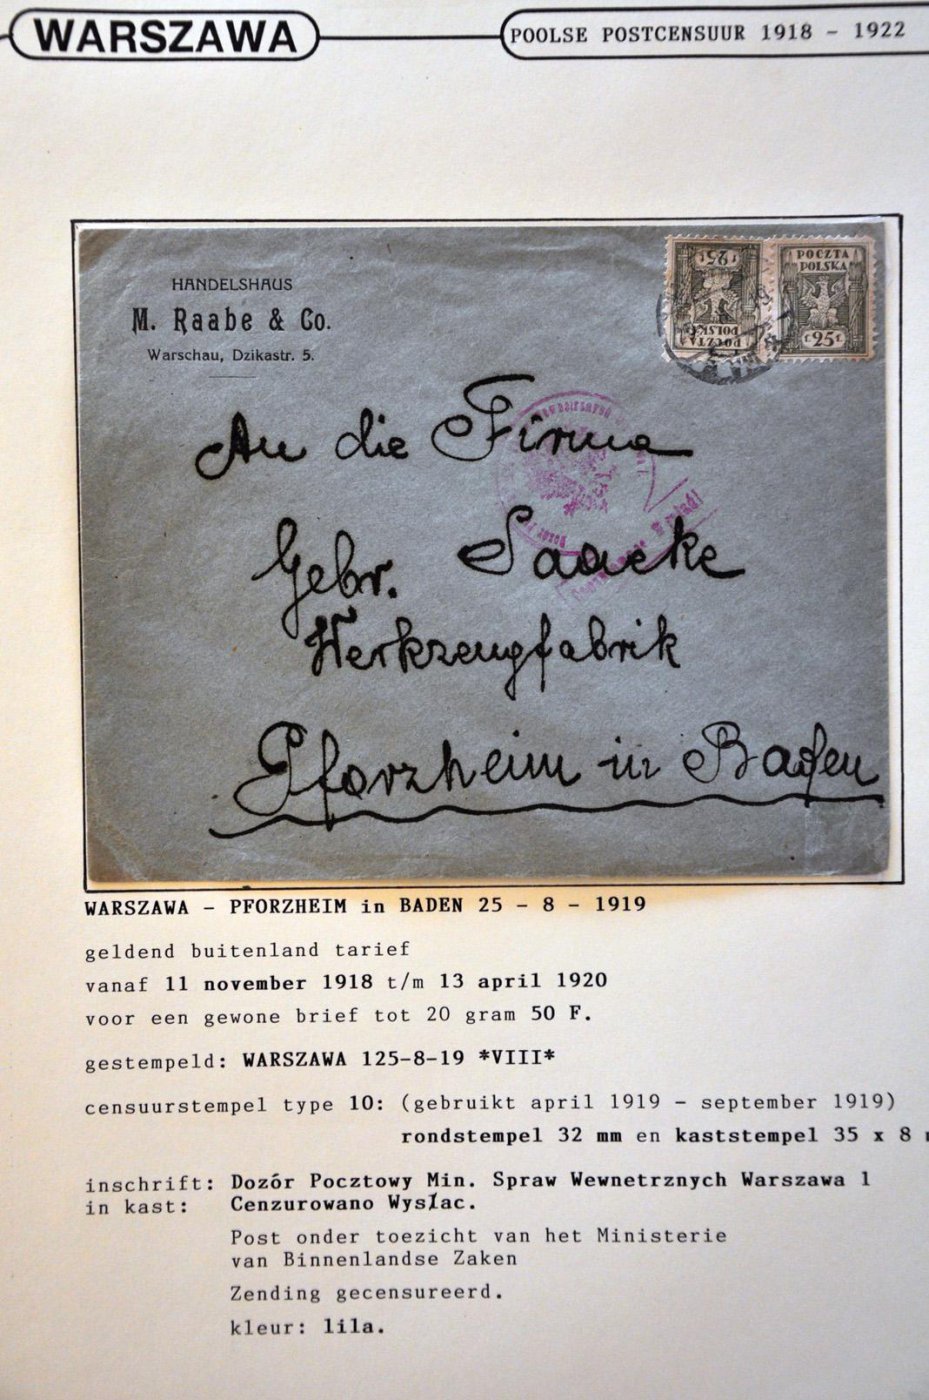 WARSZAWA
POOLSE POSTCENSUUR 1918 - 1922
HANDELSHAUS
M. Raabe & Co.
Warschau, Dzikastr. 5.
25
POCZTA
POLSKA
POCZTA
POLSKA
25
An die Firma
Gebr. Saacke
Werkzeugfabrik
Pforzheim in Baden
WARSZAWA - PFORZHEIM in BADEN 25 - 8 - 1919
geldend buitenland tarief
vanaf 11 november 1918 t/m 13 april 1920
voor een gewone brief tot 20 gram 50 F.
gestempeld: WARSZAWA 125-8-19 *VIII*
censuurstempel type 10: (gebruikt april 1919 - september 1919)
rondstempel 32 mm en kaststempel 35 x 8
inschrift: Dozór Pocztowy Min. Spraw Wewnetrznych Warszawa 1
in kast: Cenzurowano Wysłac.
Post onder toezicht van het Ministerie
van Binnenlandse Zaken
Zending gecensureerd.
kleur: lila.